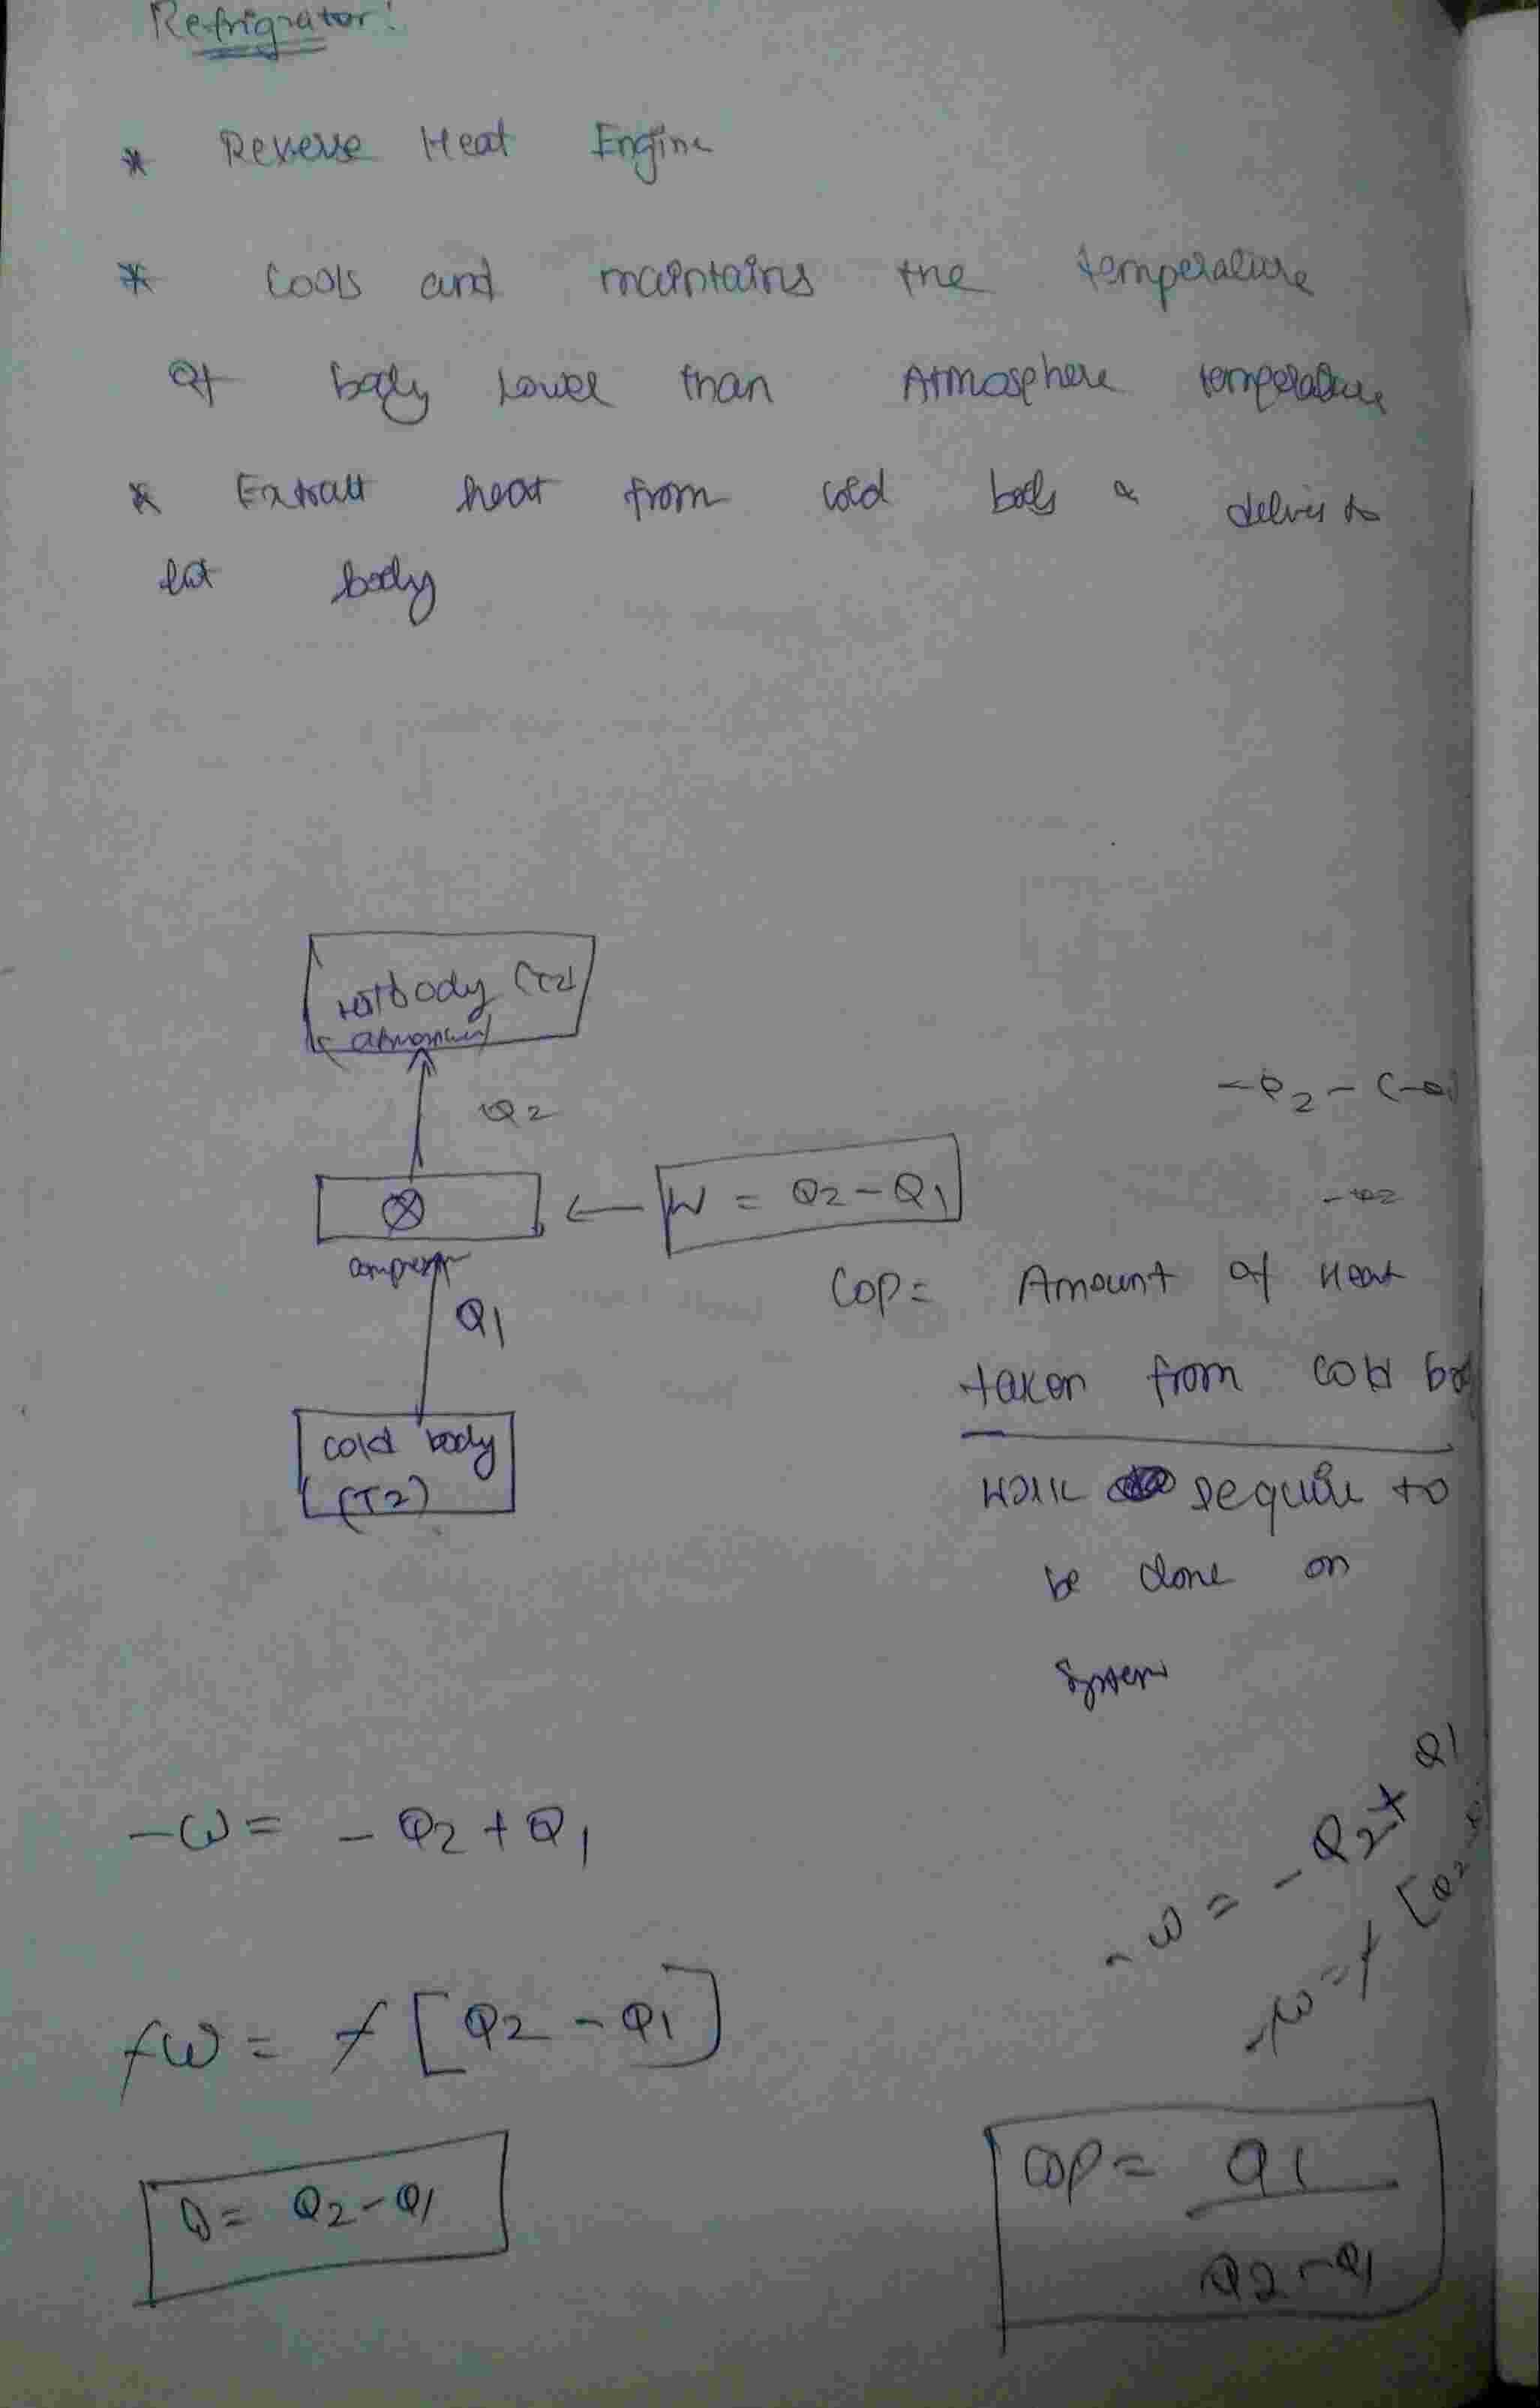 Refrigrator:
* Reverse Heat Engine
* Cools and maintains the temperature
of body lower than Atmosphere temperature
* Extract heat from cold body & deliver to
hot body
Hot body (T2)
Q2
-Q2 - (-Q
W = Q2 - Q1
compressor
Q1
COP = Amount of Heat
taken from cold bo
cold body
(T2)
work require to
be done on
system
-W = - Q2 + Q1
-W = - Q2 + Q1
-W = - [Q2
-W = - [Q2 - Q1]
W = Q2 - Q1
COP = Q1
Q2 - Q1